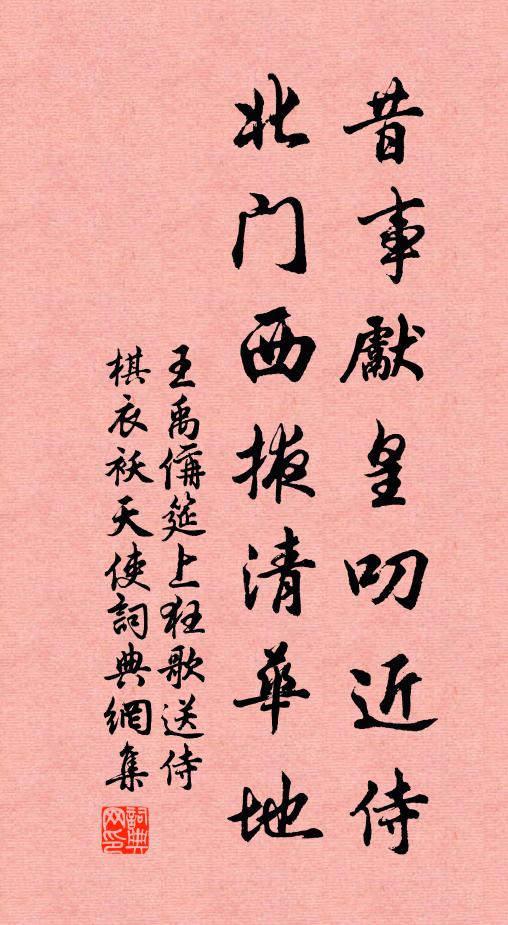 昔事獻皇叨近侍
北门西掖清華地
王禹偁筵上狂歌送侍
棋衣袄天使詞典網集
詞典网印